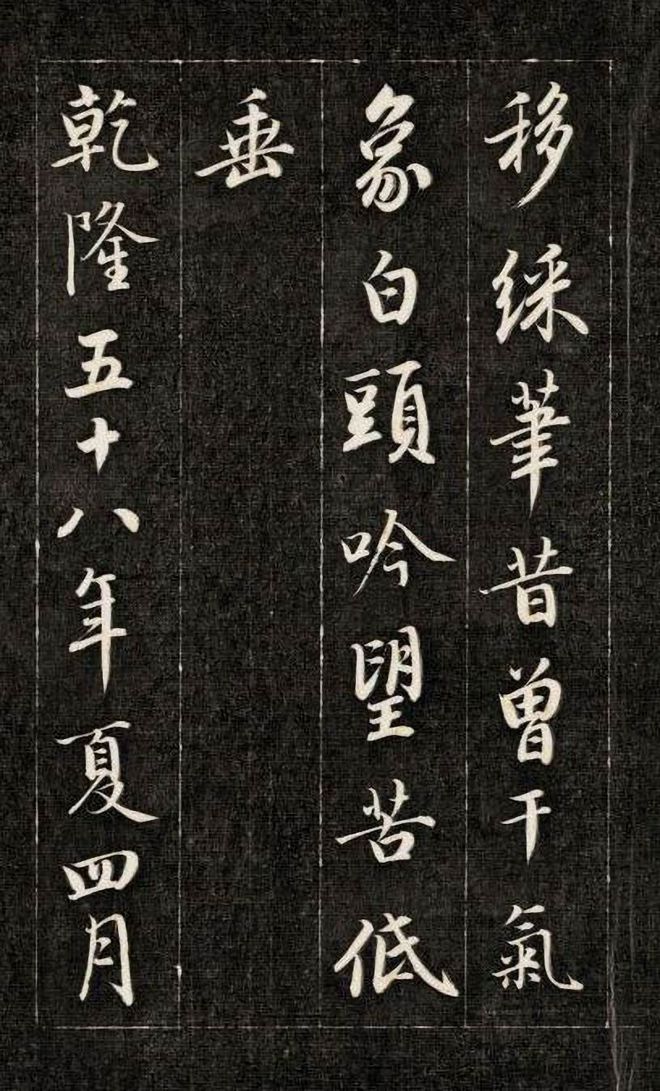 移綵筆昔曾干氣
象白頭吟望苦低
垂
乾隆五十八年夏四月